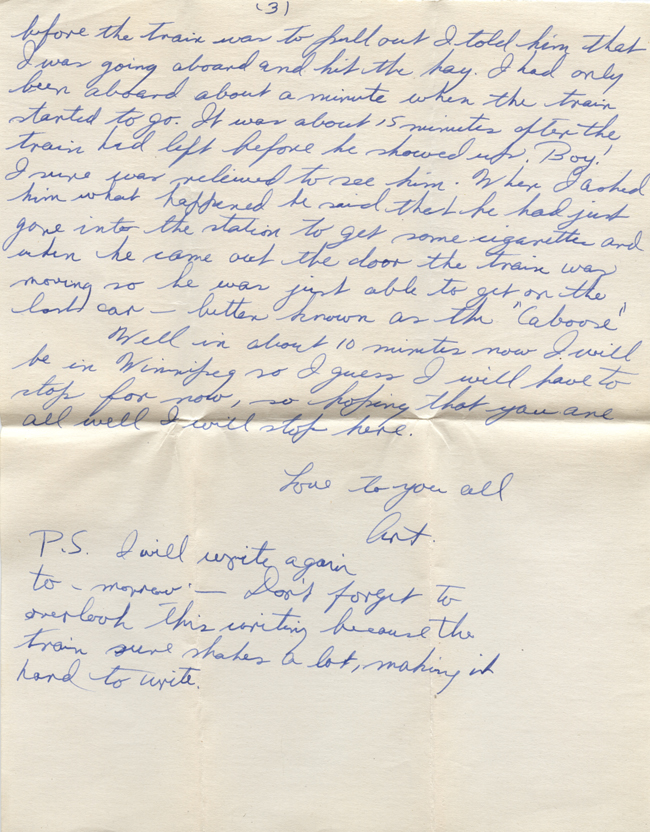 (3)
before the train was to pull out I told him that
I was going aboard and hit the hay. I had only
been aboard about a minute when the train
started to go. It was about 15 minutes after the
train had left before he showed up. Boy!
I sure was relieved to see him. When I asked
him what happened he said that he had just
gone into the station to get some cigarettes and
when he came out the door the train was
moving so he was just able to get on the
last car - better known as the "Caboose"
Well in about 10 minutes now I will
be in Winnipeg so I guess I will have to
stop for now, so hoping that you are
all well I will stop here.
Love to you all
Art.
P.S. I will write again
to-morrow - Don't forget to
overlook this writing because the
train sure shakes a lot, making it
hard to write.